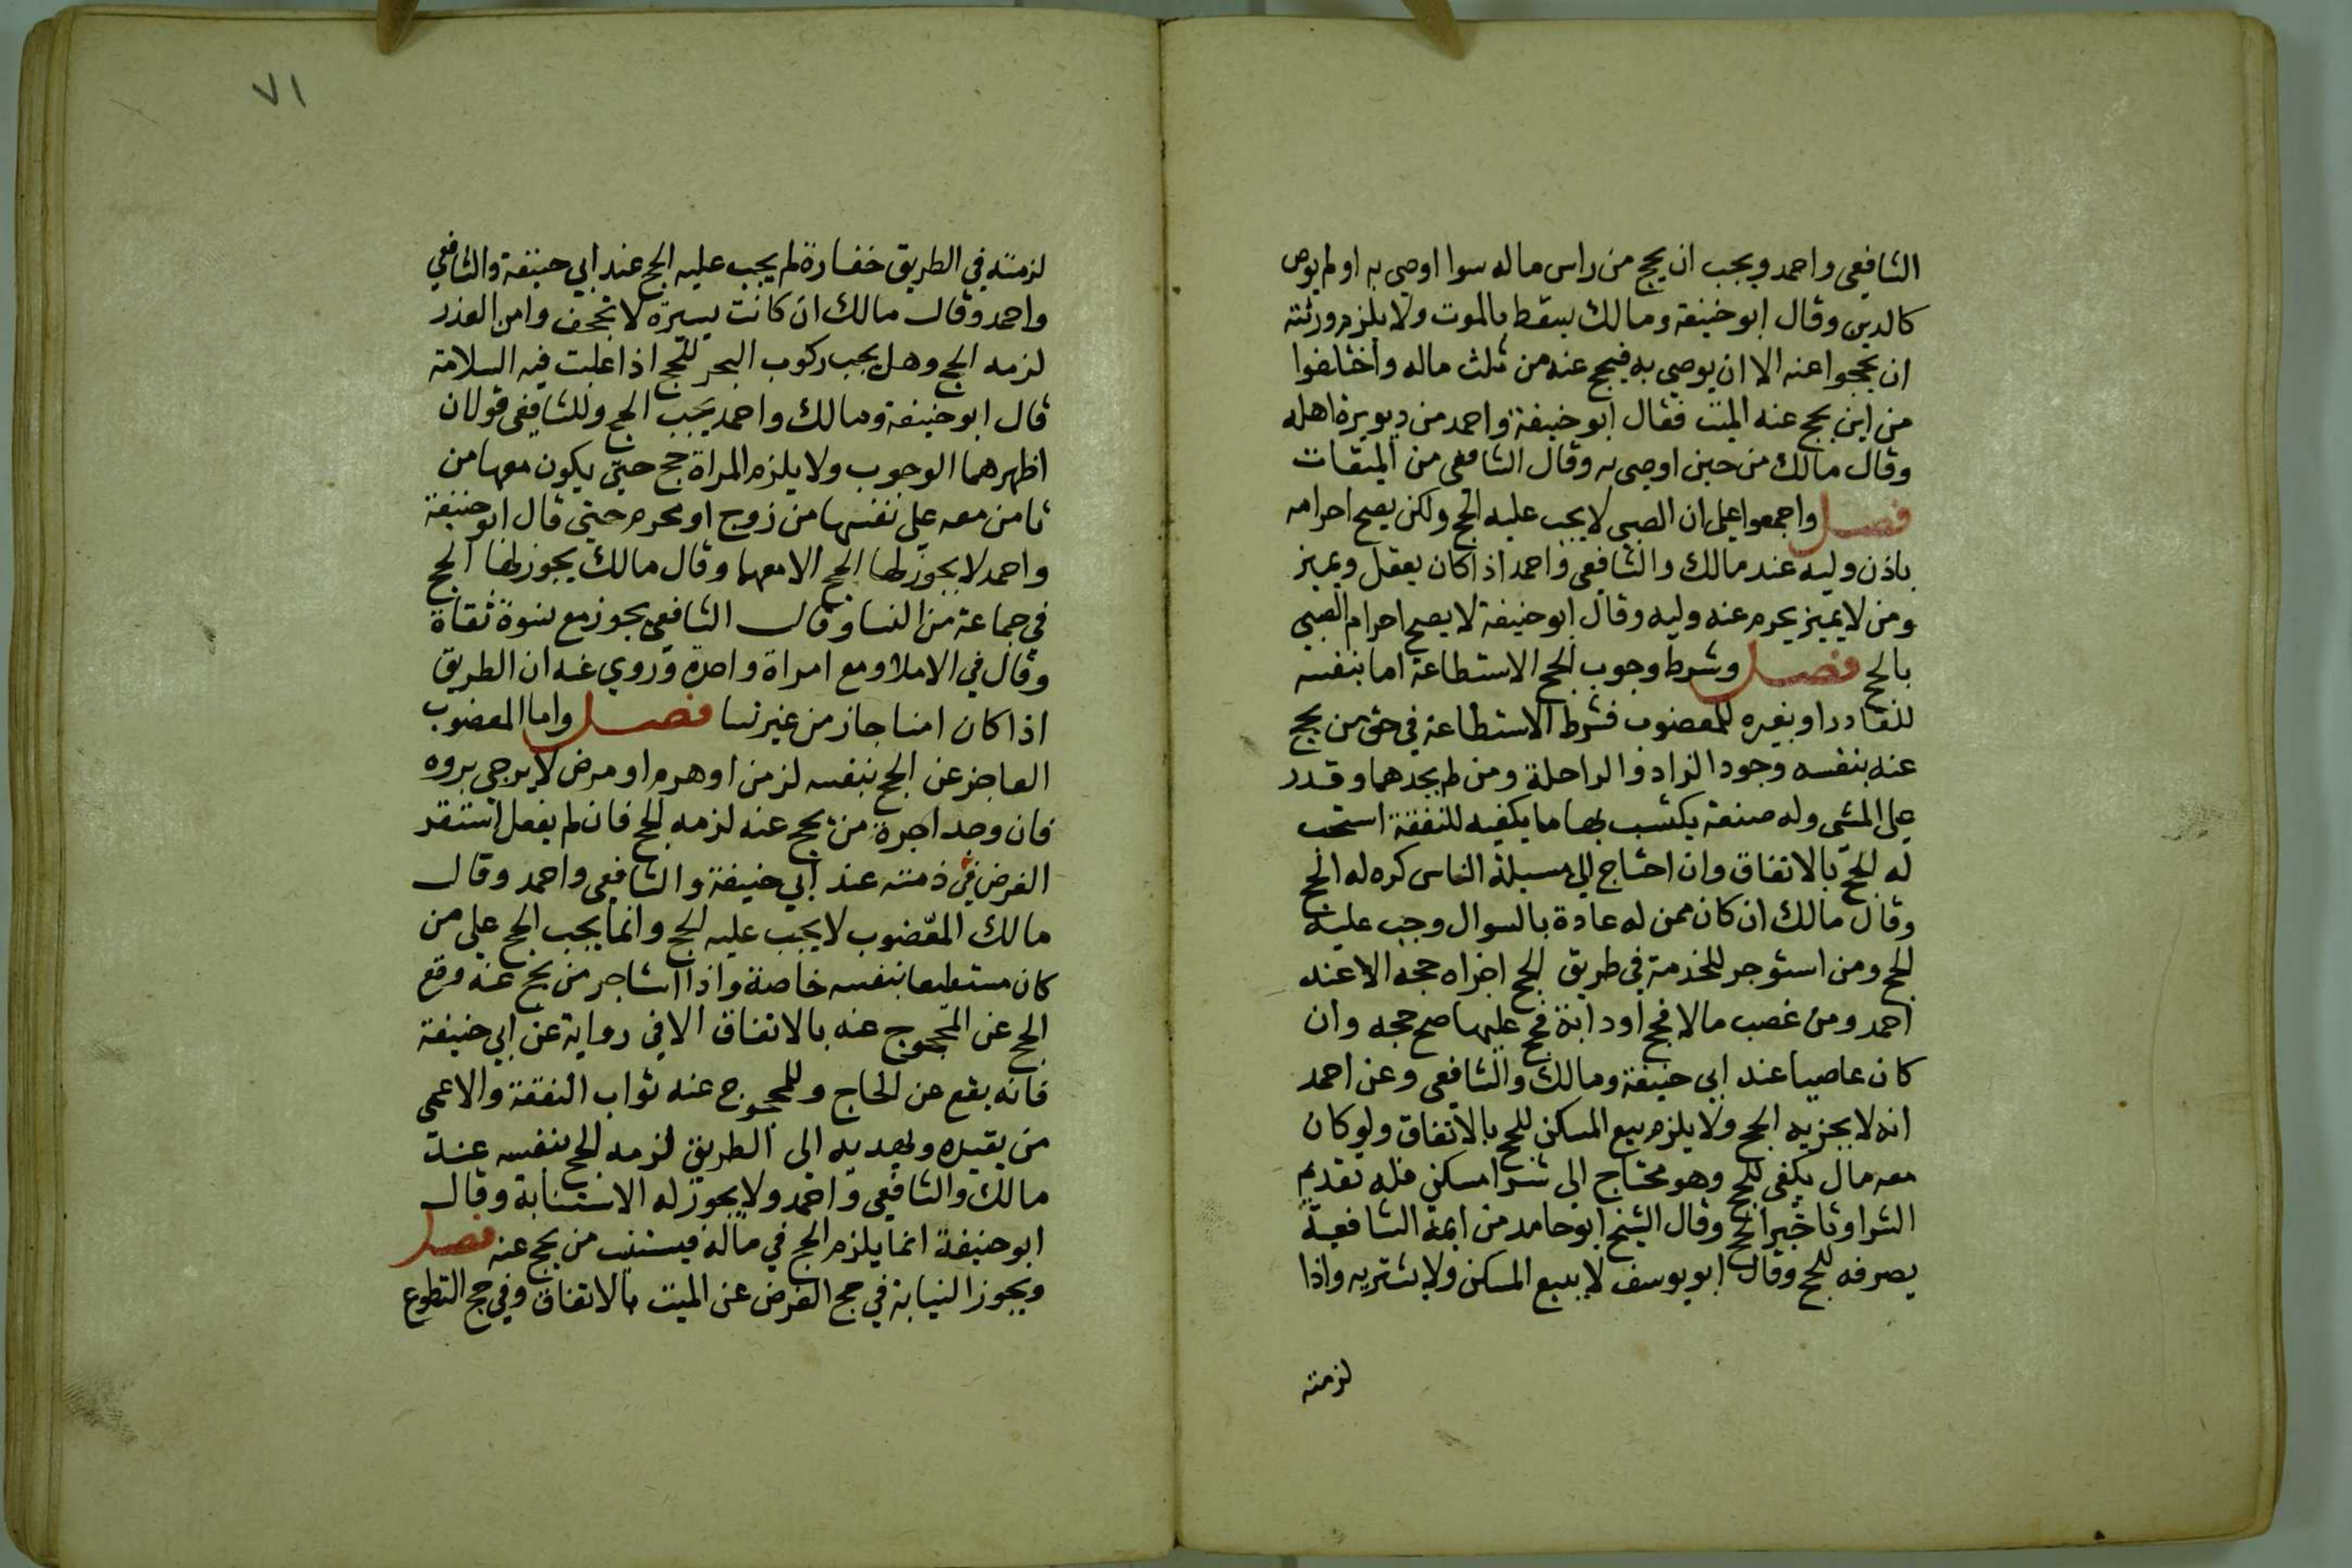 الشافعى واحمد ويجب ان يحج من راس ماله سوا اوصى به او لم يوص
كالدين وقال ابو حنيفة ومالك يسقط بالموت ولا يلزم ورثته
ان يحجوا عنه الا ان يوصي به فيحج عنه من ثلث ماله واختلفوا
من اين يحج عنه الميت فقال ابو حنيفة واحمد من دويرة اهله
وقال مالك من حين اوصى به وقال الشافعى من الميقات
فصل واجمعوا على ان الصبى لا يجب عليه الحج ولكن يصح احرامه
باذن وليه عند مالك والشافعى واحمد اذا كان يعقل ويميز
ومن لا يميز يحرم عنه وليه وقال ابو حنيفة لا يصح احرام الصبى
بالحج فصل وشرط وجوب الحج الاستطاعة اما بنفسه
للقادر او بغيره للمعضوب فشرط الاستطاعة في حق من يحج
عنه بنفسه وجود الزاد والراحلة ومن لم يجدهما وقدر
على المشى وله صنعة يكتسب بها ما يكفيه للنفقة استحب
له الحج بالاتفاق وان احتاج الى مسيلة الناس كره له الحج
وقال مالك ان كان ممن له عادة بالسوال وجب عليه
الحج ومن استوجر للخدمة في طريق الحج اجزاه حجه الا عند
احمد ومن غصب مالا فحج او دابة فحج عليها صح حجه وان
كان عاصيا عند ابي حنيفة ومالك والشافعى وعن احمد
انه لا يجزيه الحج ولا يلزم بيع المسكن للحج بالاتفاق ولو كان
معه مال يكفى للحج وهو محتاج الى شرا مسكن فله تقديم
الشرا وتاخير الحج وقال الشيخ ابو حامد من ايمة الشافعية
يصرفه للحج وقال ابو يوسف لا يبيع المسكن ولا يشتريه واذا
لزمته
٧١
لزمته في الطريق خفارة لم يجب عليه الحج عند ابي حنيفة والشافعي
واحمد وقال مالك ان كانت يسيرة لا تجحف وامن الغدر
لزمه الحج وهل يجب ركوب البحر للحج اذا غلبت فيه السلامة
قال ابو حنيفة ومالك واحمد يجب الحج وللشافعى قولان
اظهرهما الوجوب ولا يلزم المراة حج حتى يكون معها من
تامن معه على نفسها من زوج او محرم حتى قال ابو حنيفة
واحمد لا يجوز لها الحج الا معهما وقال مالك يجوز لها الحج
في جماعة من النسا وقال الشافعى يجوز مع نسوة ثقاة
وقال في الاملا ومع امراة واحدة وروي عنه ان الطريق
اذا كان امنا جاز من غير نسا فصل واما المعضوب
العاجز عن الحج بنفسه لزمن او هرم او مرض لا يرجى بروه
فان وجد اجرة من يحج عنه لزمه الحج فان لم يفعل استقر
الفرض في ذمته عند ابي حنيفة والشافعى واحمد وقال
مالك المعضوب لا يجب عليه الحج وانما يجب الحج على من
كان مستطيعا بنفسه خاصة واذا استاجر من يحج عنه وقع
الحج عن المحجوج عنه بالاتفاق الا في رواية عن ابي حنيفة
فانه يقع عن الحاج وللمحجوج عنه ثواب النفقة والاعمى
من يقيده ويهديه الى الطريق لزمه الحج بنفسه عند
مالك والشافعى واحمد ولا يجوز له الاستنابة وقال
ابو حنيفة انما يلزم الحج في ماله فيستنيب من يحج عنه فصل
ويجوز النيابة في حج الفرض عن الميت بالاتفاق وفي حج التطوع